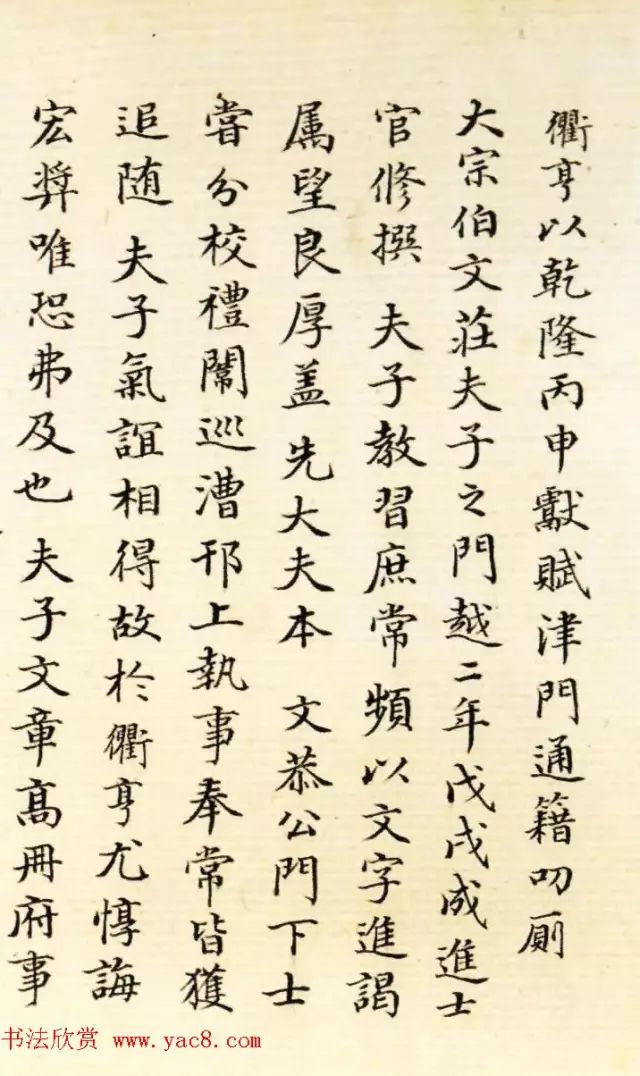 衢亨以乾隆丙申獻賦津門通籍叨厠
大宗伯文莊夫子之門越二年戊戌成進士
官修撰 夫子教習庶常頻以文字進謁
属望良厚盖先大夫本 文恭公門下士
嘗分校禮闈巡漕邗上執事奉常皆獲
追随 夫子氣誼相得故於衢亨尤惇誨
宏奨唯恐弗及也 夫子文章高冊府事
书法欣赏 www.yac8.com